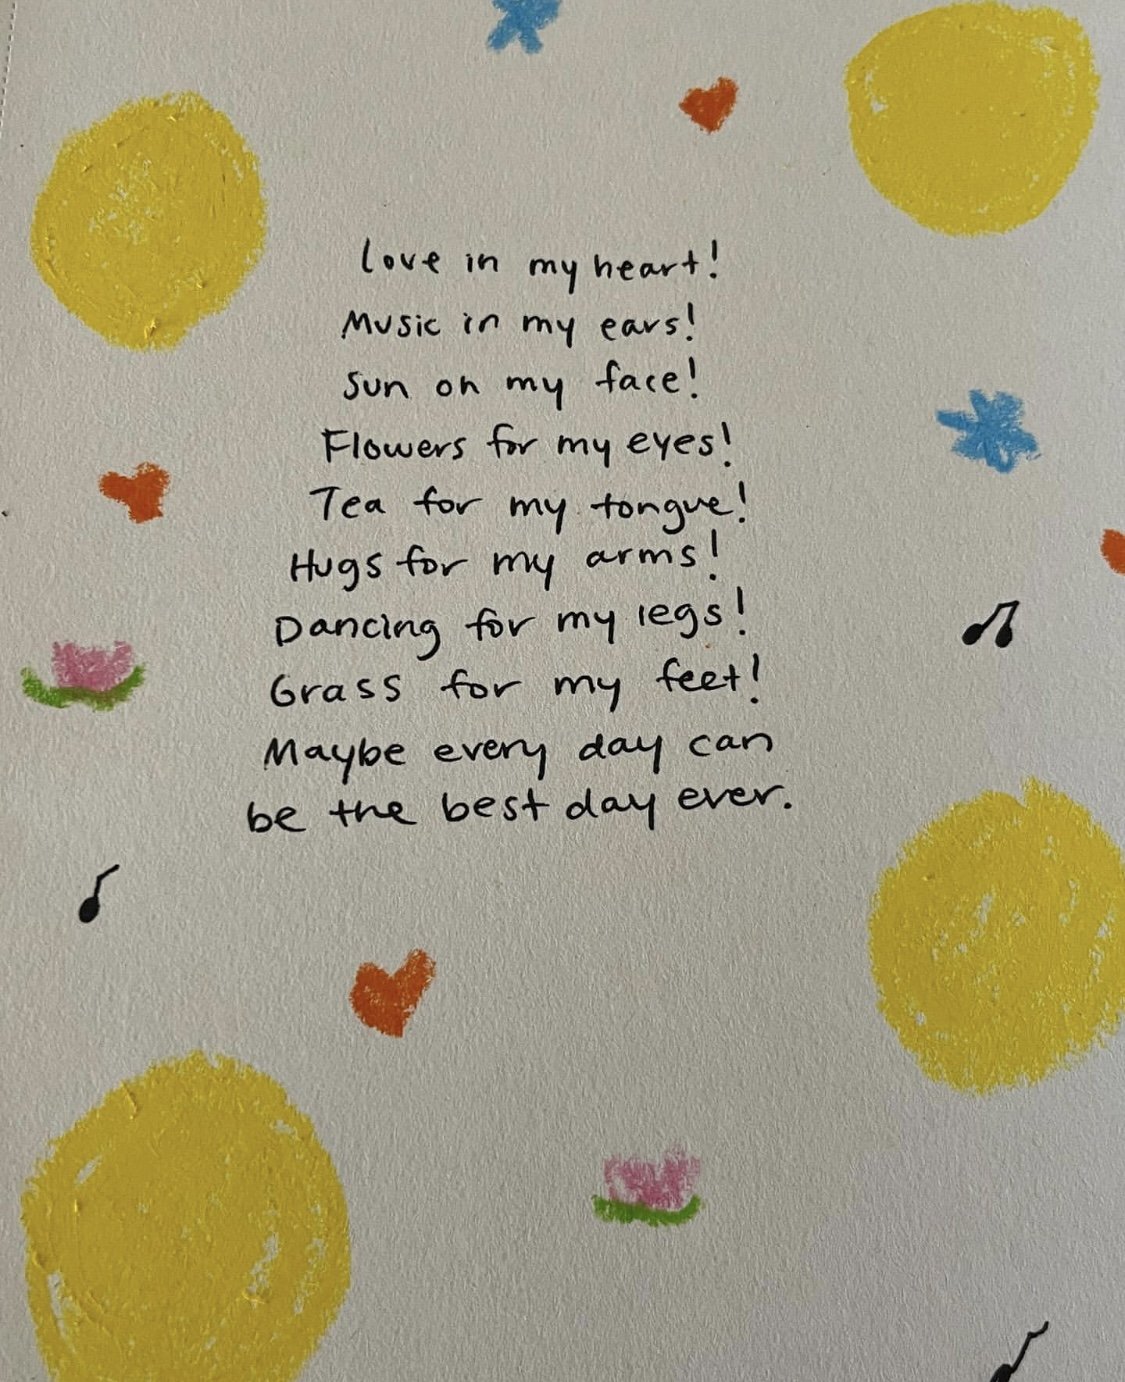 Love in my heart!
Music in my ears!
Sun on my face!
Flowers for my eyes!
Tea for my tongue!
Hugs for my arms!
Dancing for my legs!
Grass for my feet!
Maybe every day can
be the best day ever.